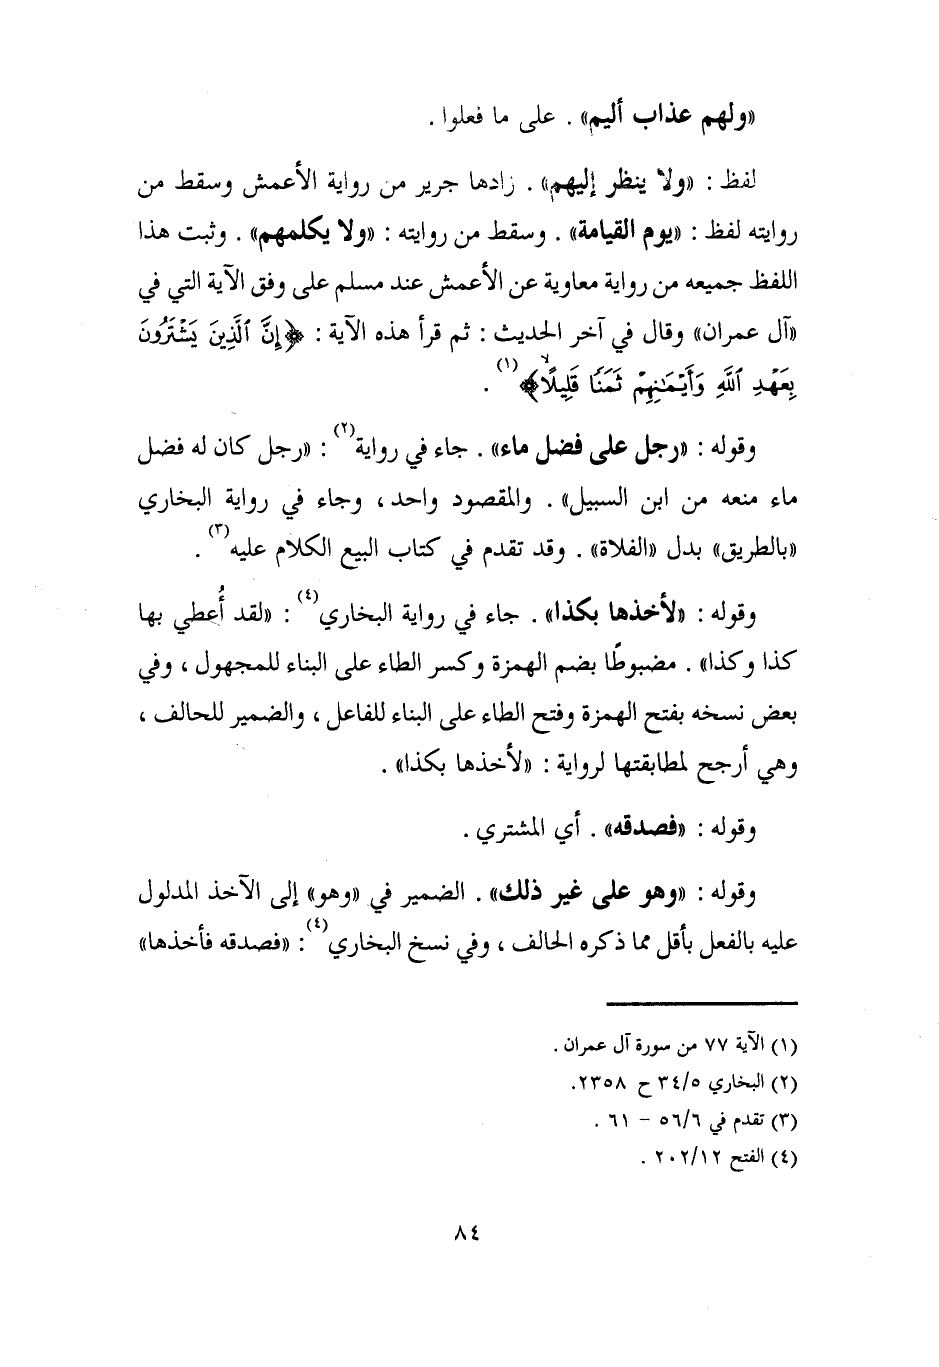 «ولهم عذاب أليم» . على ما فعلوا .
لفظ : «ولا ينظر إليهم» . زادها جرير من رواية الأعمش وسقط من
روايته لفظ : «يوم القيامة» . وسقط من روايته : «ولا يكلمهم» . وثبت هذا
اللفظ جميعه من رواية معاوية عن الأعمش عند مسلم على وفق الآية التي في
«آل عمران» وقال في آخر الحديث : ثم قرأ هذه الآية : ﴿إِنَّ ٱلَّذِينَ يَشْتَرُونَ
بِعَهْدِ ٱللَّهِ وَأَيْمَٰنِهِمْ ثَمَنًا قَلِيلًا﴾(١) .
وقوله : «رجل على فضل ماء» . جاء في رواية(٢) : «رجل كان له فضل
ماء منعه من ابن السبيل» . والمقصود واحد ، وجاء في رواية البخاري
«بالطريق» بدل «الفلاة» . وقد تقدم في كتاب البيع الكلام عليه(٣) .
وقوله : «لأخذها بكذا» . جاء في رواية البخاري(٤) : «لقد أُعطي بها
كذا وكذا» . مضبوطًا بضم الهمزة وكسر الطاء على البناء للمجهول ، وفي
بعض نسخه بفتح الهمزة وفتح الطاء على البناء للفاعل ، والضمير للحالف ،
وهي أرجح لمطابقتها لرواية : «لأخذها بكذا» .
وقوله : «فصدقه» . أي المشتري .
وقوله : «وهو على غير ذلك» . الضمير في «وهو» إلى الآخذ المدلول
عليه بالفعل بأقل مما ذكره الحالف ، وفي نسخ البخاري(٤) : «فصدقه فأخذها»
(١) الآية ٧٧ من سورة آل عمران .
(٢) البخاري ٣٤/٥ ح ٢٣٥٨.
(٣) تقدم في ٥٦/٦ – ٦١ .
(٤) الفتح ٢٠٢/١٢ .
٨٤